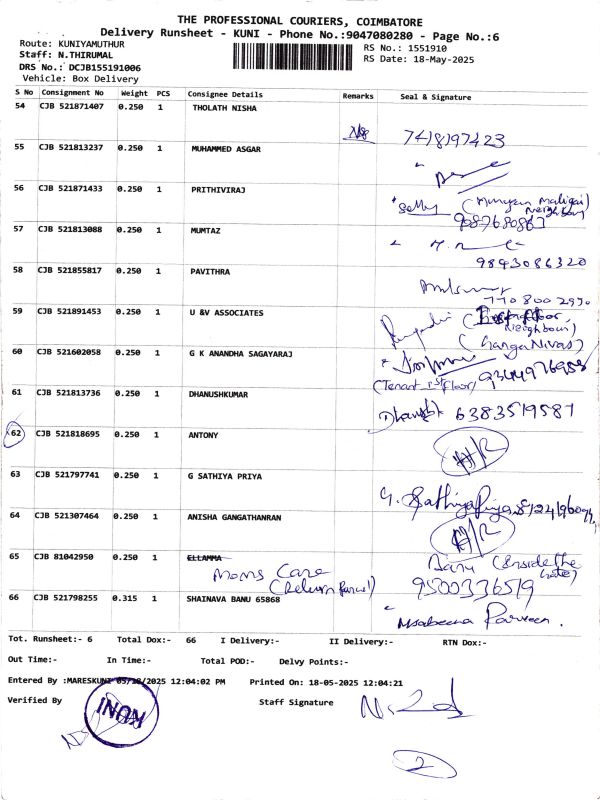 THE PROFESSIONAL COURIERS, COIMBATORE
Delivery Runsheet - KUNI - Phone No.:9047080280 - Page No.:6
Route: KUNIYAMUTHUR
RS No.: 1551910
Staff: N.THIRUMAL
RS Date: 18-May-2025
DRS No.: DCJB155191006
Vehicle: Box Delivery
S No Consignment No Weight PCS Consignee Details Remarks Seal & Signature
54 CJB 521871407 0.250 1 THOLATH NISHA
7418197423
55 CJB 521813237 0.250 1 MUHAMMED ASGAR
56 CJB 521871433 0.250 1 PRITHIVIRAJ
Selly
Neighbour
57 CJB 521813088 0.250 1 MUMTAZ
9843086320
58 CJB 521855817 0.250 1 PAVITHRA
59 CJB 521891453 0.250 1 U &V ASSOCIATES
Neighbour)
(Ganga Nivas)
60 CJB 521602058 0.250 1 G K ANANDHA SAGAYARAJ
(Tenant 1st floor)
61 CJB 521813736 0.250 1 DHANUSHKUMAR
6383519587
62 CJB 521818695 0.250 1 ANTONY
63 CJB 521797741 0.250 1 G SATHIYA PRIYA
G. SathiyaPriya
64 CJB 521307464 0.250 1 ANISHA GANGATHANRAN
65 CJB 81042950 0.250 1 ELLAMMA
Moms Care
(Return Parcel)
(Inside the
Gate)
9500336519
66 CJB 521798255 0.315 1 SHAINAVA BANU 65868
Parveen.
Tot. Runsheet:- 6 Total Dox:- 66 I Delivery:- II Delivery:- RTN Dox:-
Out Time:- In Time:- Total POD:- Delvy Points:-
Entered By :MARESKUNI 05/18/2025 12:04:02 PM Printed On: 18-05-2025 12:04:21
Verified By Staff Signature
KUNI
2